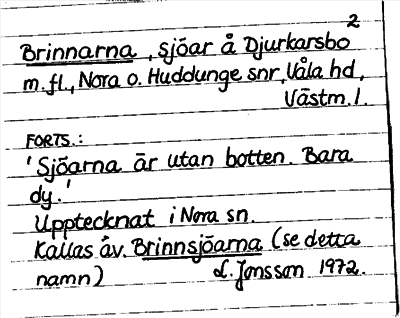 2
Brinnarna, sjöar å Djurkarsbo
m.fl., Nora o. Huddunge snr, Våla hd,
Västm. l.
FORTS.:
'Sjöarna är utan botten. Bara
dy.'
Upptecknat i Nora sn.
Kallas äv. Brinnsjöarna (se detta
namn) L. Jonsson 1972.